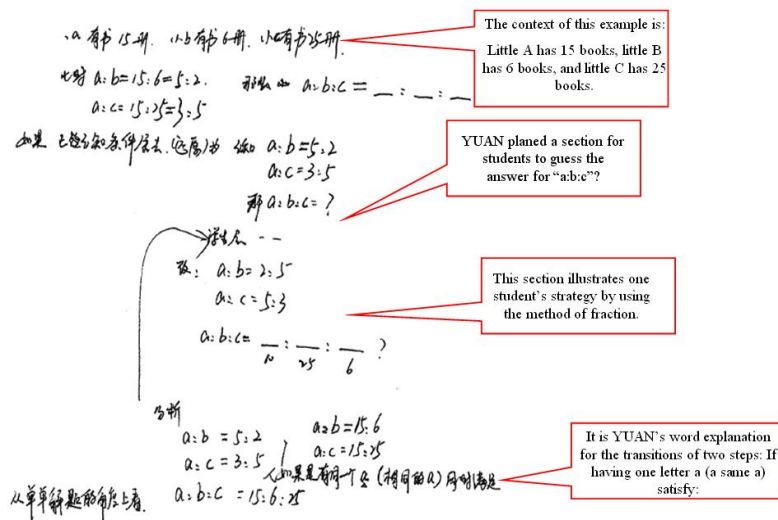 小a 有书 15 册. 小b 有书 6 册. 小c 有书 25 册.
此时 a:b=15:6=5:2. 那么 a:b:c = _ : _ : _
a:c=15:25=3:5
如果 已知条件 a:b=5:2
a:c=3:5
那 a:b:c=?
学生
a:b=2:5
a:c=5:3
a:b:c= _ : _ : _ ?
10 25 6
分析
a:b=5:2 a:b=15:6
a:c=3:5 a:c=15:25
如果是有同一个 a (相同的 a) 同时满足
从单单解题的角度上看. a:b:c =15:6:25
The context of this example is:
Little A has 15 books, little B
has 6 books, and little C has 25
books.
YUAN planed a section for
students to guess the
answer for “a:b:c”?
This section illustrates one
student’s strategy by using
the method of fraction.
It is YUAN’s word explanation
for the transitions of two steps: If
having one letter a (a same a)
satisfy: